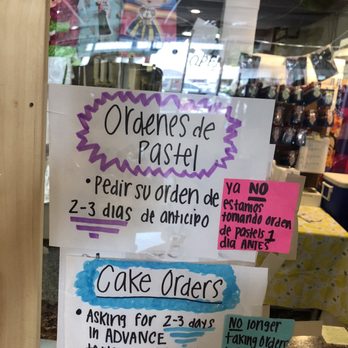 Ordenes de
Pastel
• Pedir su orden de
2-3 dias de anticipo
ya NO
estamos
tomando orden
de pastels 1
dia ANTES
Cake Orders
• Asking for 2-3 days
in ADVANCE
No longer
taking orders